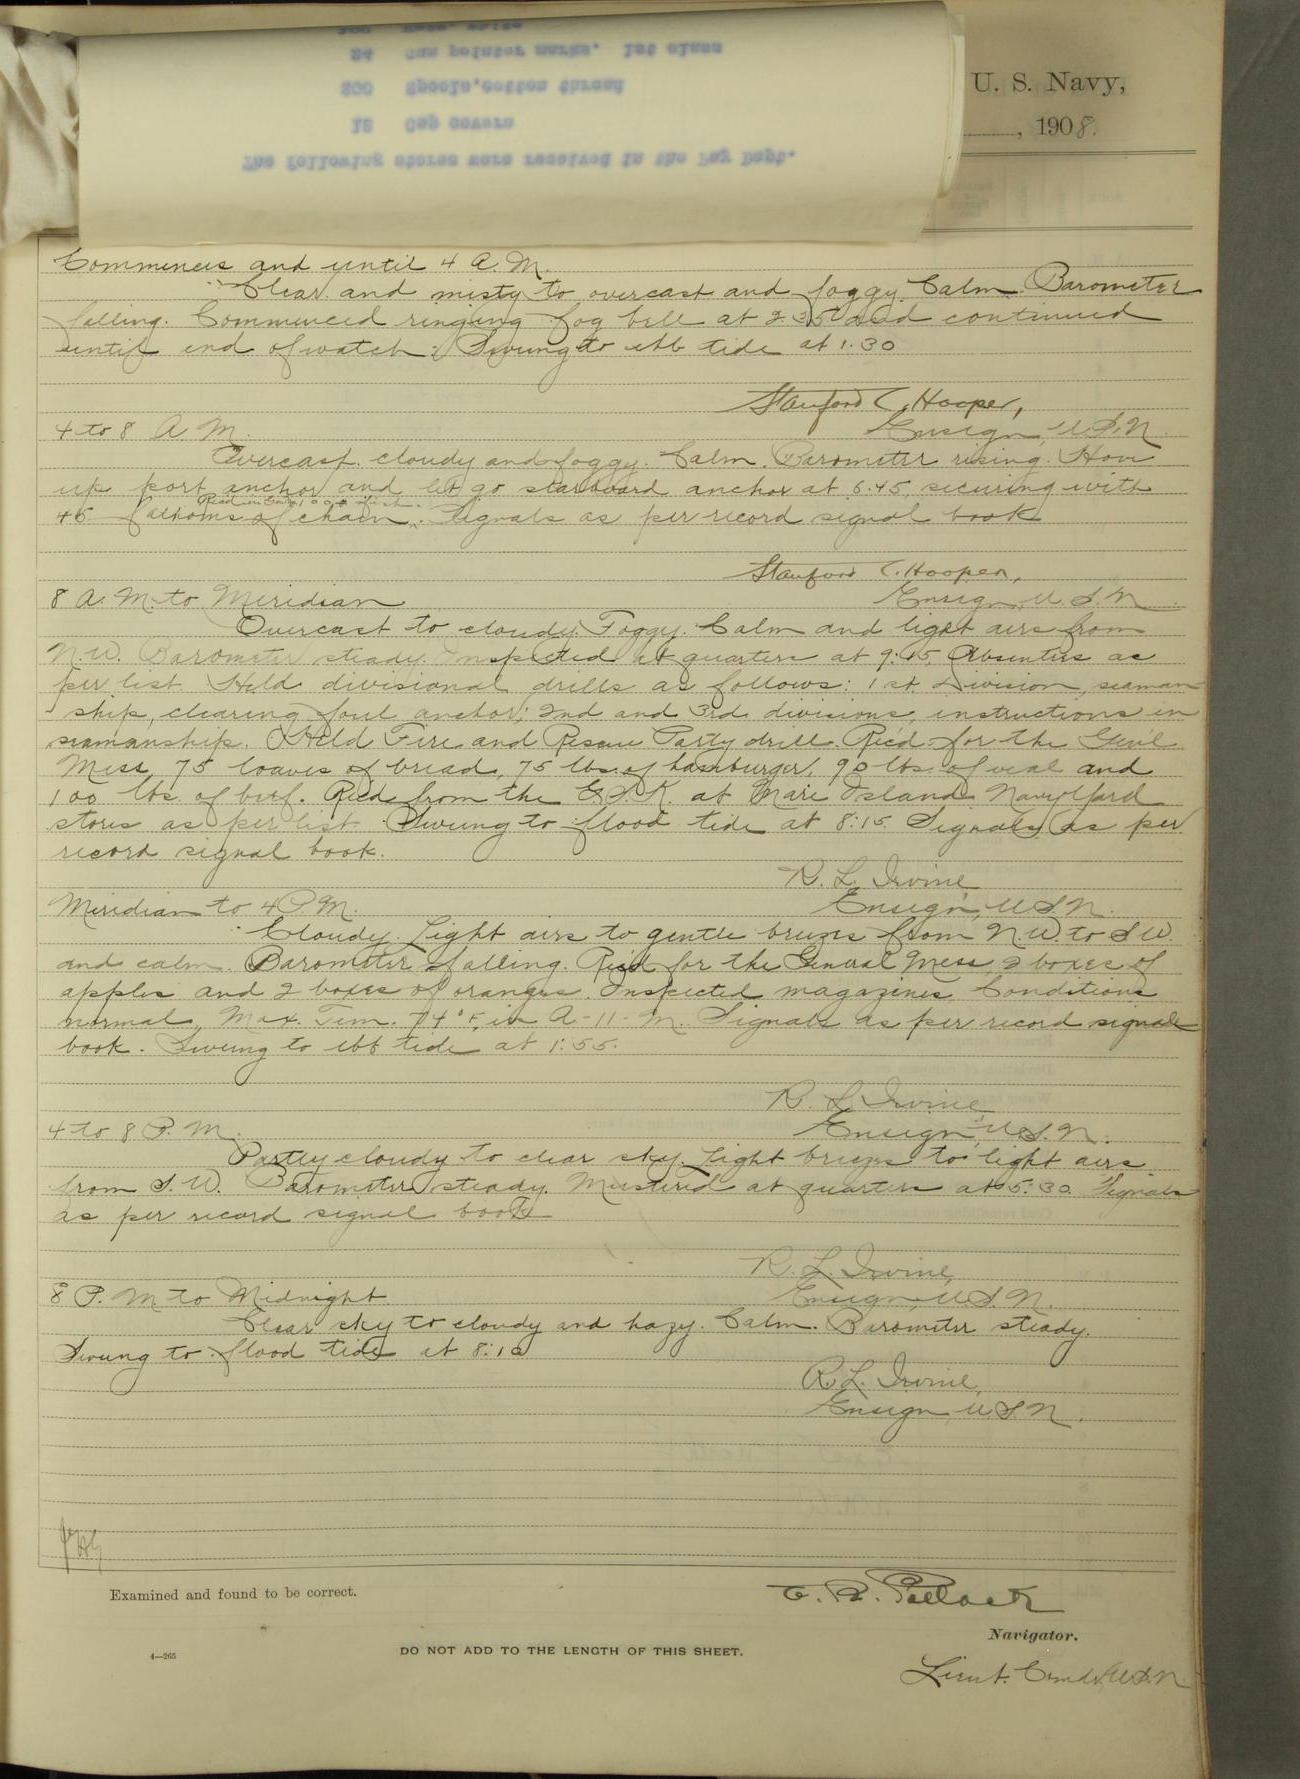 The following stores were received in the Pay Dept.
12 Cap covers
200 Spools, cotton thread
24 Gun pointer marks, 1st class
U. S. Navy,
, 1908.
Commences and until 4 A. M.
Clear and misty to overcast and foggy. Calm. Barometer
falling. Commenced ringing fog bell at 2:35 and continued
until end of watch. Swung to ebb tide at 1.30
Stanford C. Hooper,
4 to 8 A M.
Ensign, U.S.N.
Overcast cloudy and foggy. Calm. Barometer rising. Hove
up port anchor and let go starboard anchor at 6:45, securing with
45 fathoms of chain. Signals as per record signal book
Stanford C. Hooper,
8 A. M. to Meridian
Ensign, U.S.N.
Overcast to cloudy. Foggy. Calm and light airs from
N.W. Barometer steady. Inspected at quarters at 9:15. Absentees as
per list. Held divisional drills as follows: 1st Division, seaman-
ship, clearing foul anchor; 2nd and 3rd divisions, instructions in
seamanship. Held Fire and Rescue Party drill. Rec'd for the Gen'l
Mess, 75 loaves of bread, 75 lbs. of hamburger, 90 lbs. of veal and
100 lbs. of beef. Rec'd from the G.S.K. at Mare Island Navy Yard
stores as per list. Swung to flood tide at 8:15. Signals as per
record signal book.
R. L. Irvine,
Meridian to 4 P.M.
Ensign, U.S.N.
Cloudy. Light airs to gentle breezes from N.W. to S.W.
and calm. Barometer falling. Rec'd for the General Mess, 2 boxes of
apples and 2 boxes of oranges. Inspected magazines. Conditions
normal, Max. Tem. 74° F. in A-11-M. Signals as per record signal
book. Swung to ebb tide at 1:55.
R. L. Irvine,
4 to 8 P. M.
Ensign, U.S.N.
Partly cloudy to clear sky. Light breezes to light airs
from S.W. Barometer steady. Mustered at quarters at 5:30. Signals
as per record signal book
R. L. Irvine,
8 P. M to Midnight.
Ensign, U.S.N.
Clear sky to cloudy and hazy. Calm. Barometer steady.
Swung to flood tide at 8:10
R. L. Irvine,
Ensign, U.S.N.
Examined and found to be correct.
E. R. Pollock
Navigator.
4—265
DO NOT ADD TO THE LENGTH OF THIS SHEET.
Lieut. Comdr, U.S.N